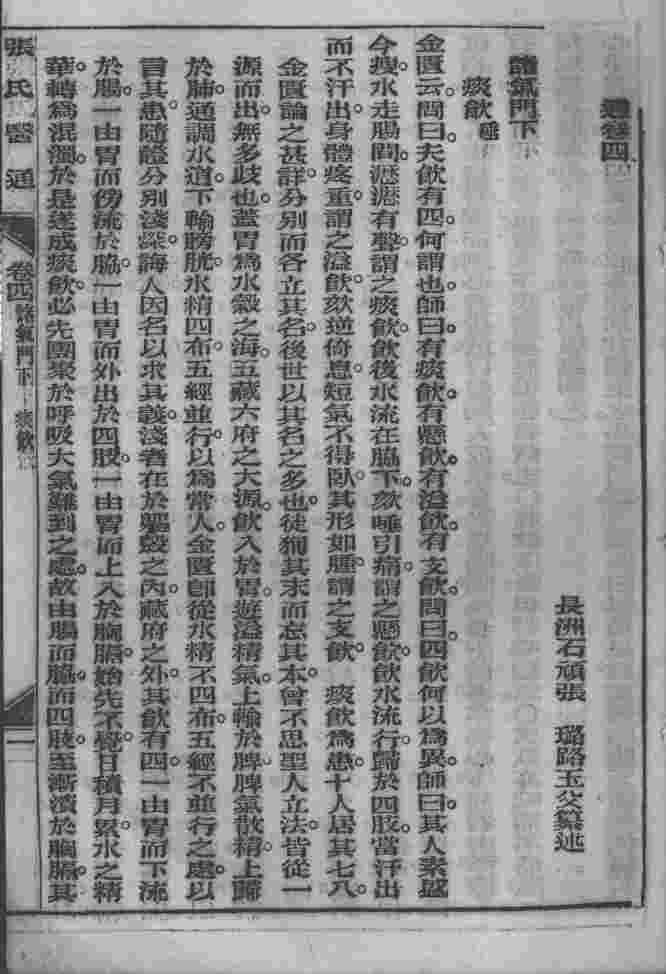 通卷四
長洲石頑張 璐路玉父纂述
諸氣門下
痰飲
金匱云。問曰。夫飲有四。何謂也。師曰。有痰飲。有懸飲。有溢飲。有支飲。問曰。四飲何以為異。師曰。其人素盛
今瘦。水走腸間。瀝瀝有聲。謂之痰飲。飲後水流在脇下。欬唾引痛。謂之懸飲。飲水流行。歸於四肢。當汗出
而不汗出。身體疼重。謂之溢飲。欬逆倚息。短氣不得臥。其形如腫。謂之支飲。 痰飲為患。十人居其七八。
金匱論之甚詳。分別而各立其名。後世以其名之多也。徒狥其末而忘其本。曾不思聖人立法。皆從一
源而出。無多歧也。蓋胃為水穀之海。五藏六府之大源。飲入於胃。遊溢精氣。上輸於脾。脾氣散精。上歸
於肺。通調水道。下輸膀胱。水精四布。五經並行。以為常人。金匱即從水精不四布。五經不並行之處。以
言其患。隨證分別淺深。誨人因名以求其義。淺者在於軀殼之內。藏府之外。其飲有四。一由胃而下流
於腸。一由胃而傍流於脇。一由胃而外出於四肢。一由胃而上入於胸膈。始先不覺。日積月累。水之精
華。轉為混濁。於是遂成痰飲。必先團聚於呼吸大氣難到之處。故由腸而脇而四肢。至漸漬於胸膈。其
張氏醫通
卷四諸氣門下 痰飲
一